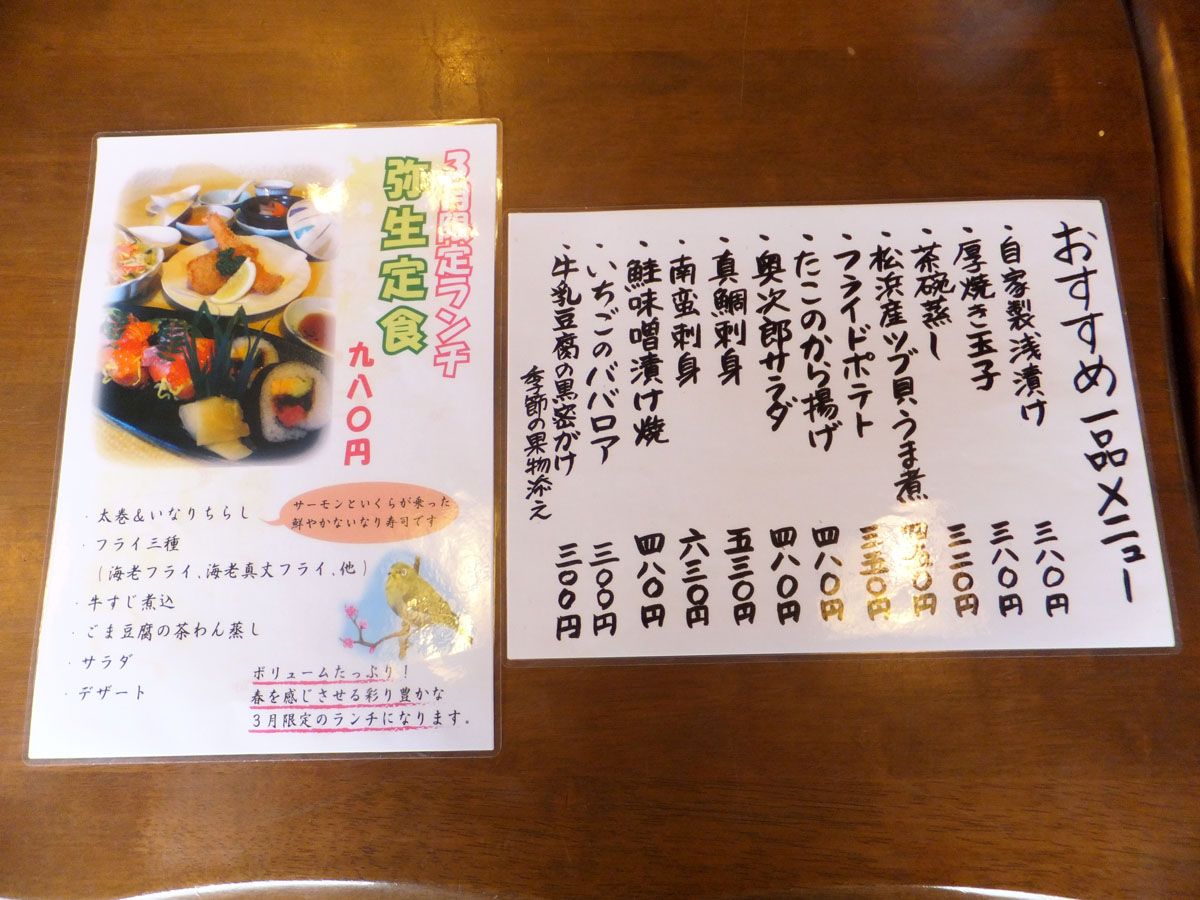 3月限定ランチ
弥生定食
九八〇円
サーモンといくらが乗った
鮮やかないなり寿司です
・太巻&いなりちらし
・フライ三種
(海老フライ、海老真丈フライ、他)
・牛すじ煮込
・ごま豆腐の茶わん蒸し
・サラダ
・デザート
ボリュームたっぷり!
春を感じさせる彩り豊かな
3月限定のランチになります。
おすすめ一品メニュー
・自家製浅漬け 三八〇円
・厚焼き玉子 三八〇円
・茶碗蒸し 三二〇円
・松浜産ツブ貝うま煮
・フライドポテト 三五〇円
・たこのから揚げ 四八〇円
・奥次郎サラダ 四八〇円
・真鯛刺身 五三〇円
・南蛮刺身 六三〇円
・鮭味噌漬け焼 四八〇円
・いちごのババロア 三〇〇円
・牛乳豆腐の黒密がけ 三〇〇円
季節の果物添え